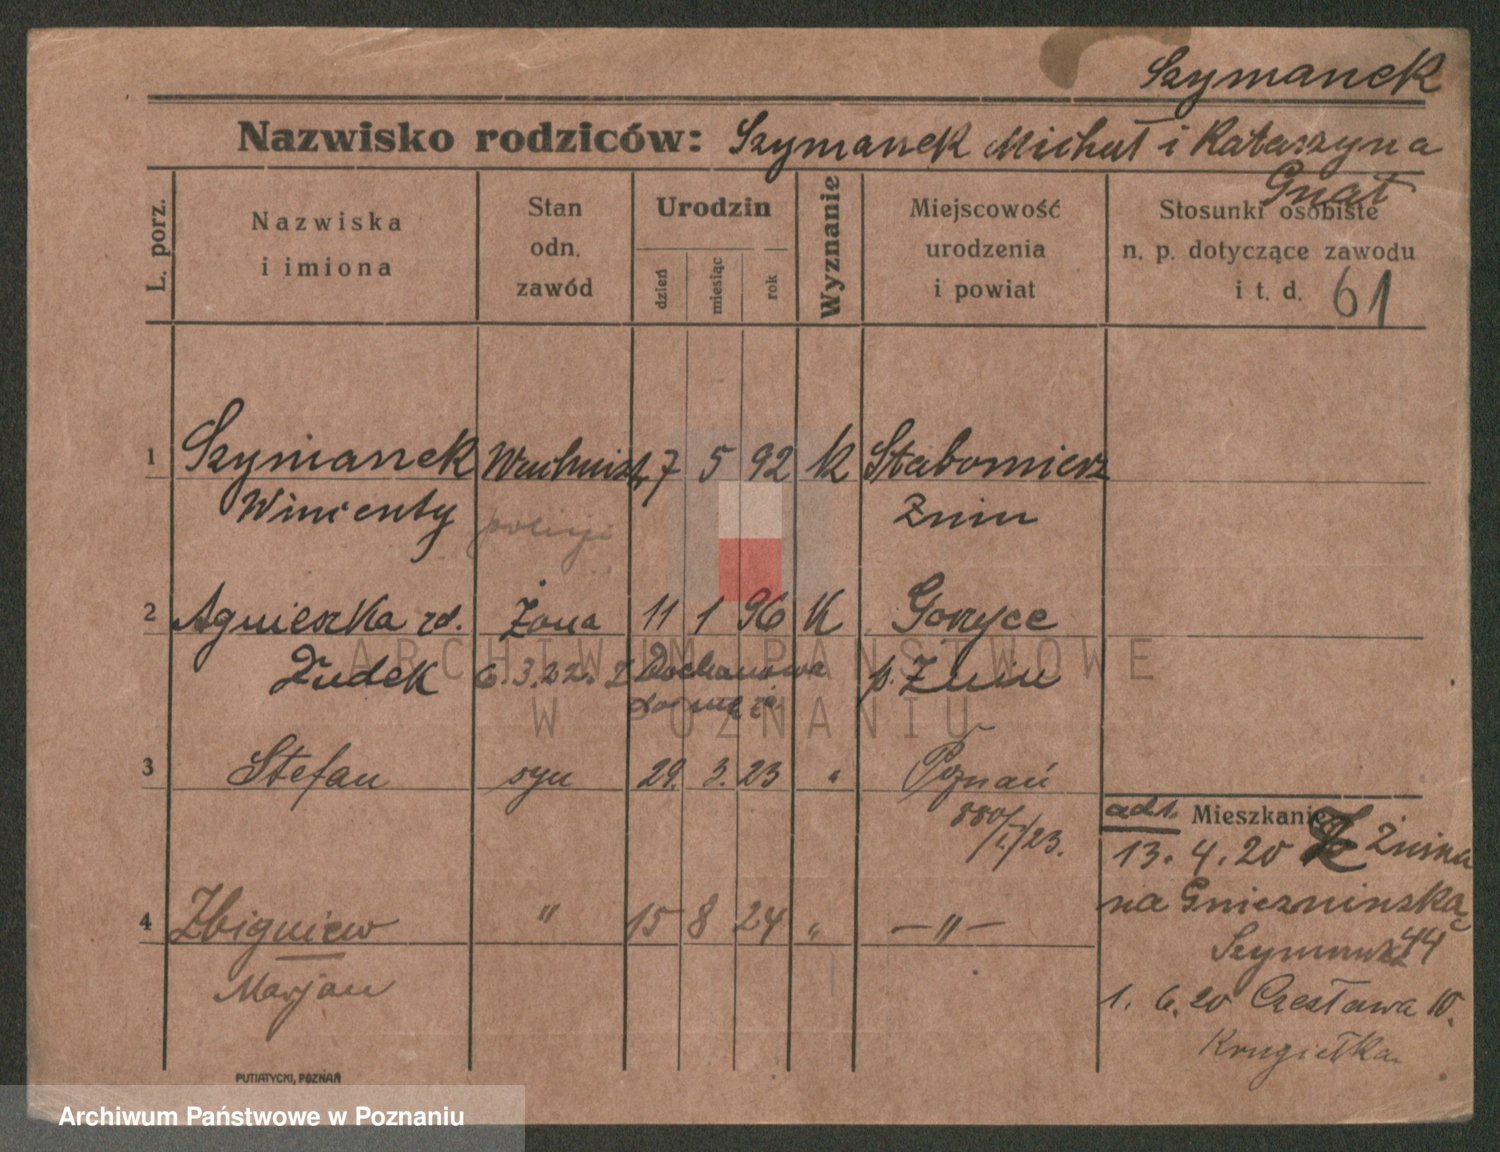 Szymanek
Nazwisko rodziców: Szymanek Michał i Katarzyna
Gnat
L. porz.
Nazwiska
i imiona
Stan
odn.
zawód
Urodzin
dzień
miesiąc
rok
Wyznanie
Miejscowość
urodzenia
i powiat
Stosunki osobiste
n. p. dotyczące zawodu
i t. d. 61
1 Szymanek 7 5 92 k
Wincenty policji Żnin
2 Agnieszka rd. Żona 11 1 96 K Gorzyce
Żudek 6.3.22. Z Dochanowa p. Żnin
do męża
3 Stefan syn 29. 3. 23 " Poznań
880/I/23.
adr. Mieszkanie
13. 4. 20 Z Żnina
na Gnieznińską
44
4 Zbigniew " 15 8 24 " —"—
Marjan
1. 6. 20 Czesława 10.
PUTIATYCKI, POZNAŃ
ARCHIWUM PAŃSTWOWE
W POZNANIU
Archiwum Państwowe w Poznaniu